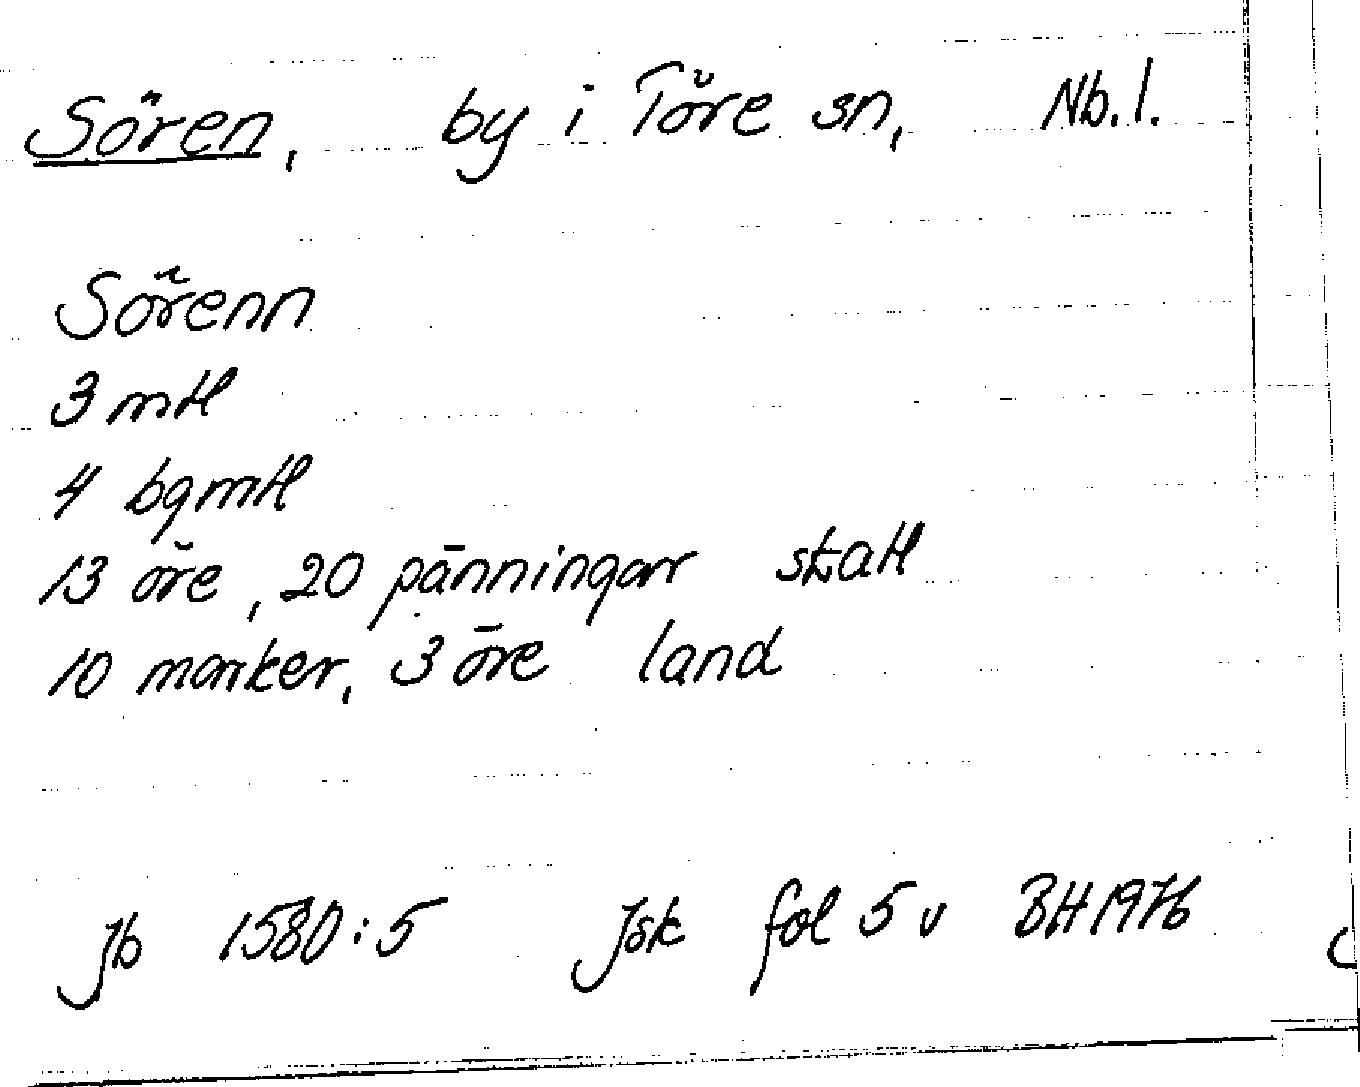 Sören, by i Töre sn, Nb. l.
Sörenn
3 mtl
4 bgmtl
13 öre, 20 pänningar skatt
10 marker, 3 öre land
Jb 1580:5 Jsk fol 5 v BH 1976